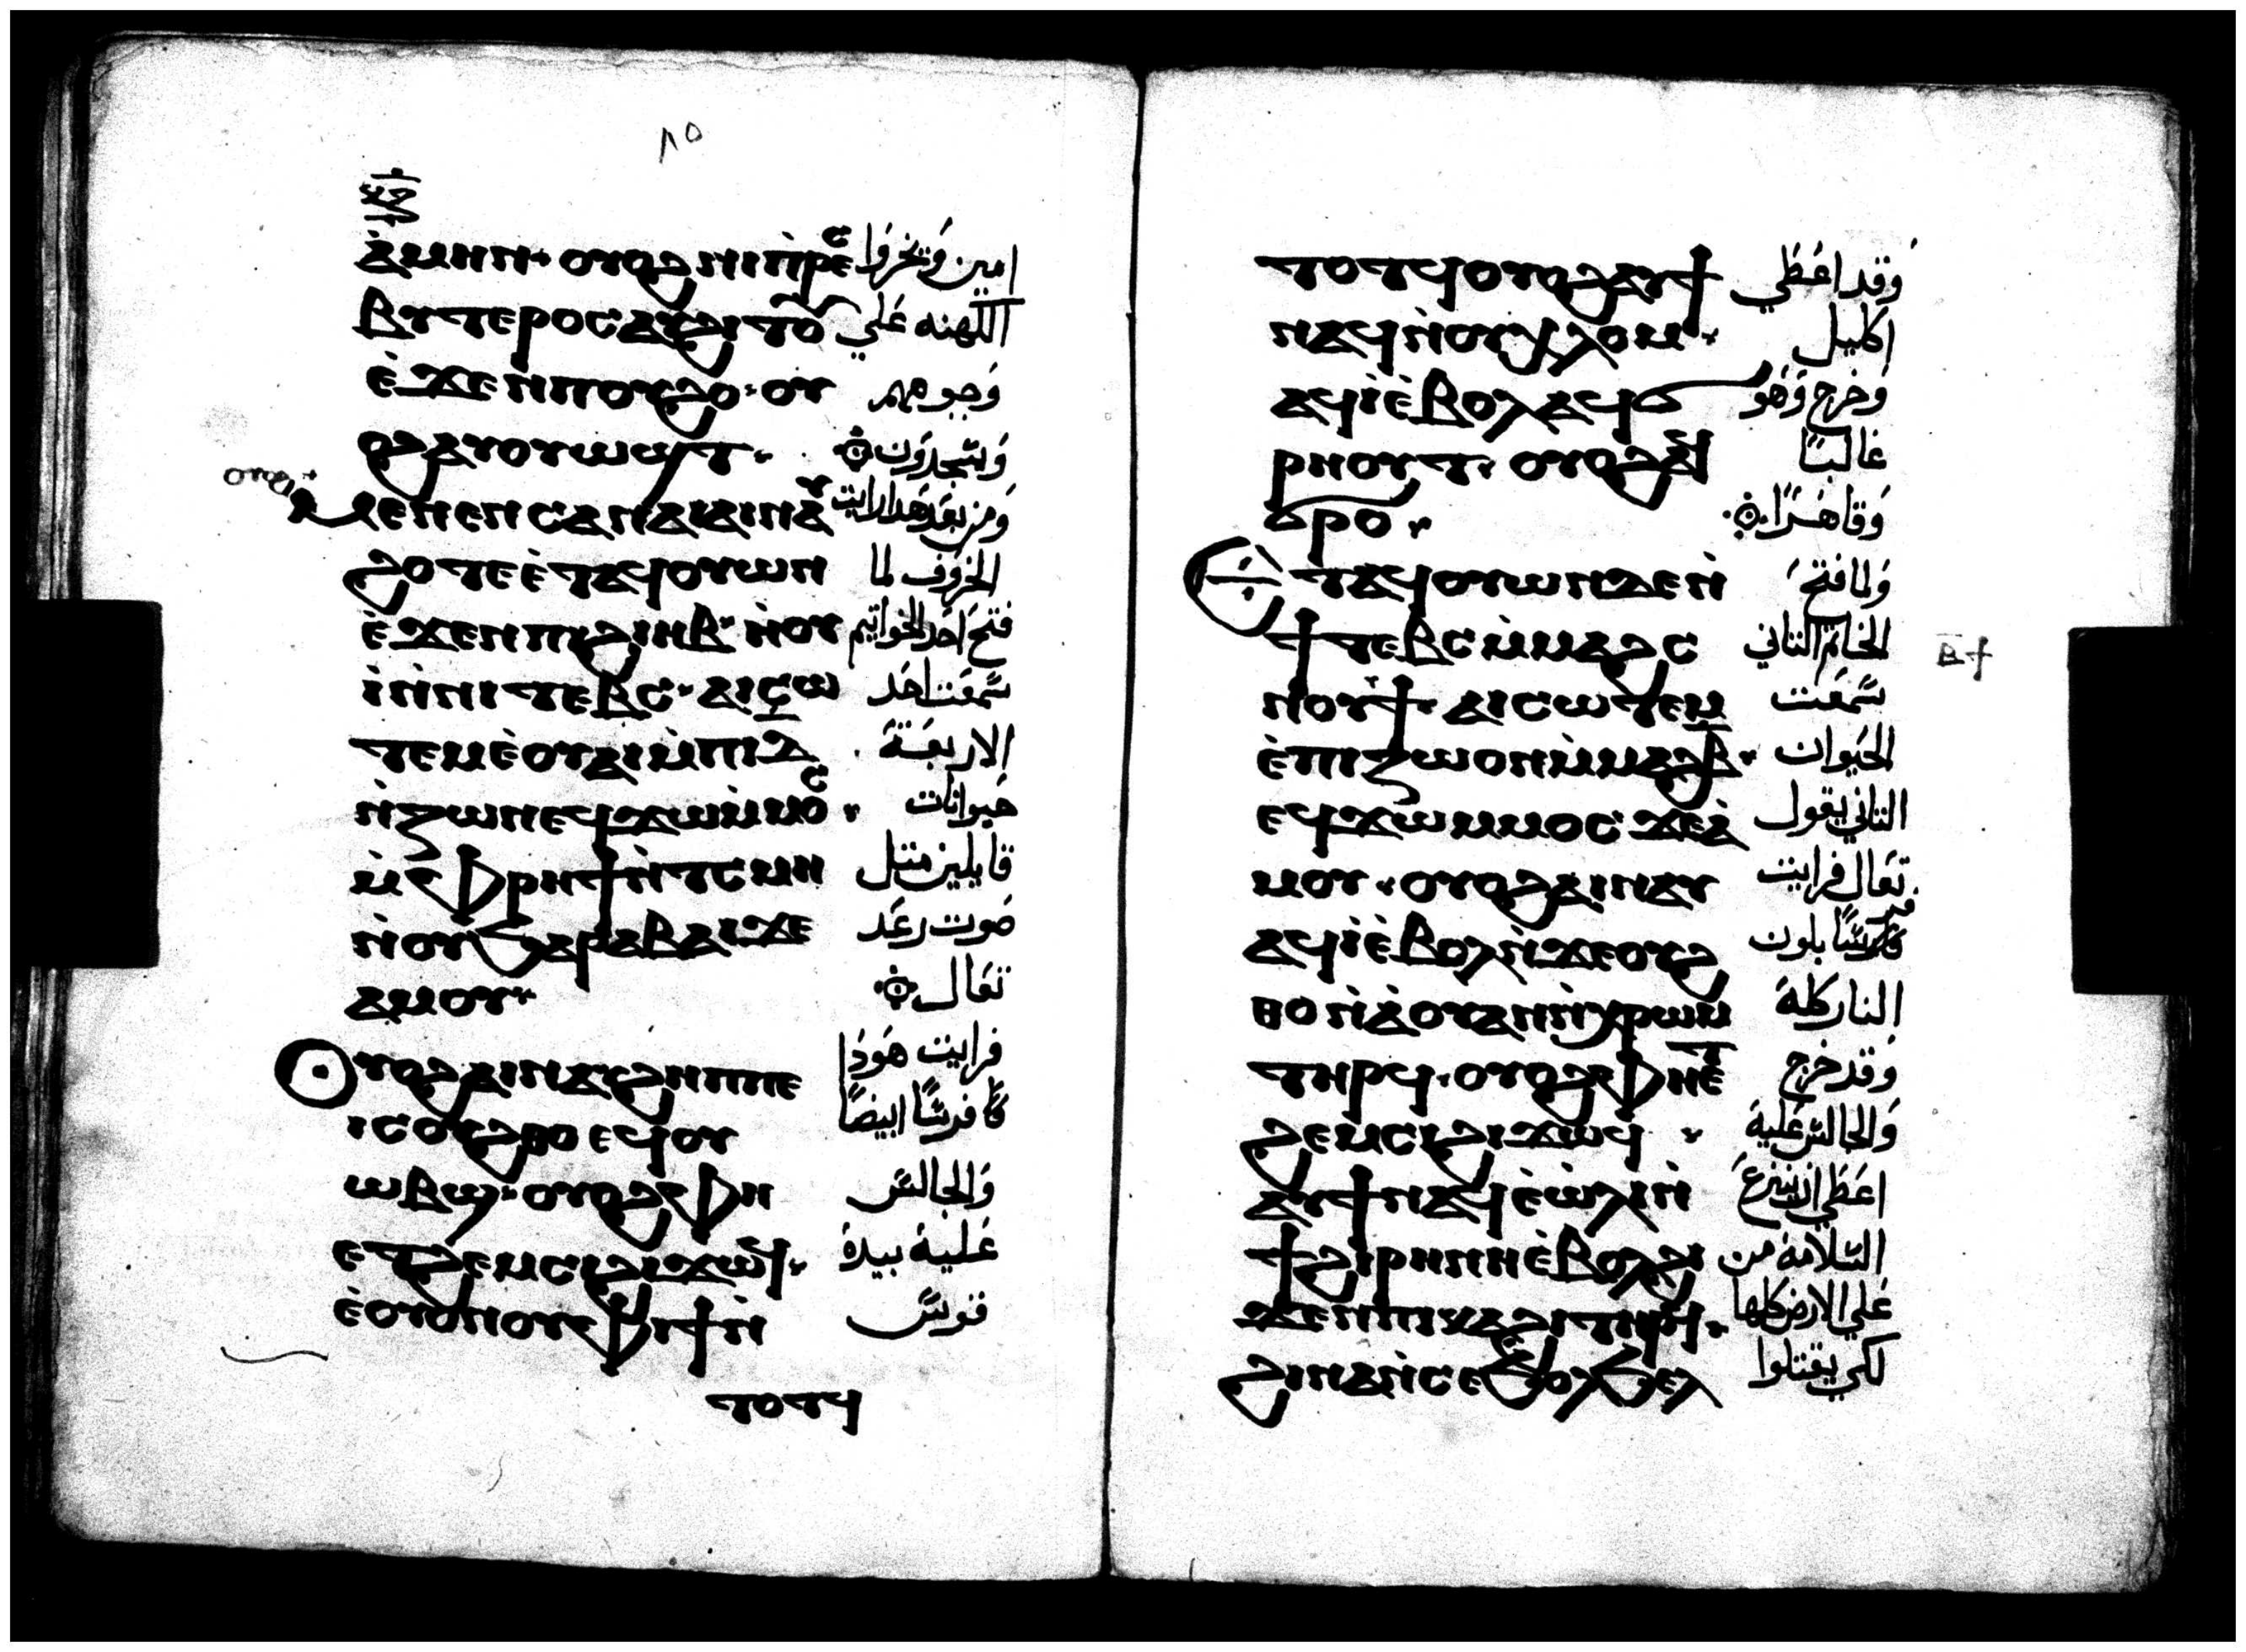 ٨٥
ⲁ̀ⲙⲏⲛ· ⲟⲩⲟϩ ⲛⲓⲡ̀ⲣⲉⲥ امين وَيخروا
ⲃⲩⲧⲉⲣⲟⲥ ⲁⲩϩⲓⲧⲟⲩ الكهنه عَلي
ⲉ̀ϫⲉⲛ ⲡⲟⲩϩⲟ· ⲟⲩ وَجوههم
ⲟϩ ⲁⲩⲟⲩⲱϣⲧ· وَيسجدَون
ⲟⲩⲟϩ
ⲙⲉⲛⲉⲛⲥⲁ ⲛⲁⲓ ⲁⲓⲛⲁⲩ وَمن بعَد هَدا رايت
ϩⲟⲧⲉ ⲉ̀ⲧⲁϥⲟⲩⲱⲛ الخروَف لما
ⲉ̀ϫⲉⲛ ⲡⲓϩⲓⲏⲃ· ⲛ̀ⲟⲩ فتحَ احَد الخواتيم
ⲓ̀ ⲛ̀ⲛⲓⲧⲉⲃⲥ· ⲁⲓⲥⲱ سمعَت احَد
ⲧⲉⲙ ⲉ̀ⲟⲩⲁⲓ ⲙ̀ⲡⲓⲇ̅ الاربعَة
ⲛ̀ⲍⲱⲟⲛ ⲉϥϫⲱ ⲙ̀ⲙⲟⲥ· حَيوانات
ⲙ̀ⲫⲣⲏϯ ⲛ̀ⲧⲥⲙⲏ قايلين متل
ⲛ̀ⲟⲩϧⲁⲣⲁⲃⲁⲓ ϫⲉ صَوت رعَد
ⲁⲙⲟⲩ· تعَال
ⲟⲩⲟϩ ⲁⲓⲛⲁⲩ ϩⲏⲡⲡⲉ فرايت هَودا
ⲓⲥ ⲟⲩϩⲑⲟ ⲉϥⲟⲩ فرسًا ابيضًا
ⲱⲃϣ· ⲟⲩⲟϩ ⲫⲏ وَالجالس
ⲉⲧϩⲉⲙⲥⲓ ϩⲓϫⲱϥ· عَلية بيدة
ⲉ̀ⲟⲩⲟⲛ ⲟⲩⲫⲓϯ ⲛ̀ قوسً
ⲧⲟⲧϥ
ⲧⲟⲧϥ ⲟⲩⲟϩ ⲁⲩϯ وَقد اعَطَي
ⲛⲁϥ ⲛ̀ⲟⲩⲭⲗⲟⲙ· اكليل
ⲁϥⲓ̀ ⲉ̀ⲃⲟⲗ ⲁϥϭ وَخرج وَهَو
ⲣⲏⲟⲩⲧ· ⲟⲩⲟϩ ⲁϥ غالبًا
ϭⲣⲟ· وَقاهَرًا
ⲉⲧⲁϥⲟⲩⲱⲛ ϫⲉⲛ̀ وَلما فتحَ
ϯⲧⲉⲃⲥ ⲙ̀ⲙⲁϩⲥ الخاتم التاني
ⲛⲟⲩϯ· ⲁⲓⲥⲱⲧⲉⲙ سمعَت
ⲉ̀ⲡⲓⲍⲱⲟⲛ ⲙ̀ⲙⲁϩⲃ̅· الحَيوان
ⲉϥϫⲱ ⲙⲙⲟⲥ ϫⲉ ⲁ̀ التاني يقول
ⲙⲟⲩ· ⲟⲩⲟϩ ⲁⲓⲛⲁⲩ تعَال فرايت
ⲁϥⲓ̀ ⲉ̀ⲃⲟⲗ ⲛ̀ϫⲉ ⲟⲩϩ بلون
ⲑⲟ ⲛ̀ⲁ̀ⲟⲩⲁⲛ ⲛ̀ⲭⲣⲱⲙ النار كلهَ
ⲧⲏⲣϥ· ⲟⲩⲟϩ ⲫⲏⲉⲧ وَقد خرج
ϩⲉⲙⲥⲓ ϩⲓϫⲱϥ · وَالجالس عَلية
ⲁⲩϯ ⲛⲁϥ ⲉ̀ⲱ̀ⲗⲓ ⲛ̀ اعَطَي ان ينزعَ
ϯϩⲓⲣⲏⲛⲏ ⲉ̀ⲃⲟⲗ ϩⲓ السَلامة من
ϫⲉⲛ ⲡⲓⲕⲁϩⲓ ⲧⲏⲣϥ· عَلي الارض كلها
ϩⲓⲛⲁ ⲛ̀ⲥⲉϧⲟⲗϧⲉⲗ لكي يقتلوا